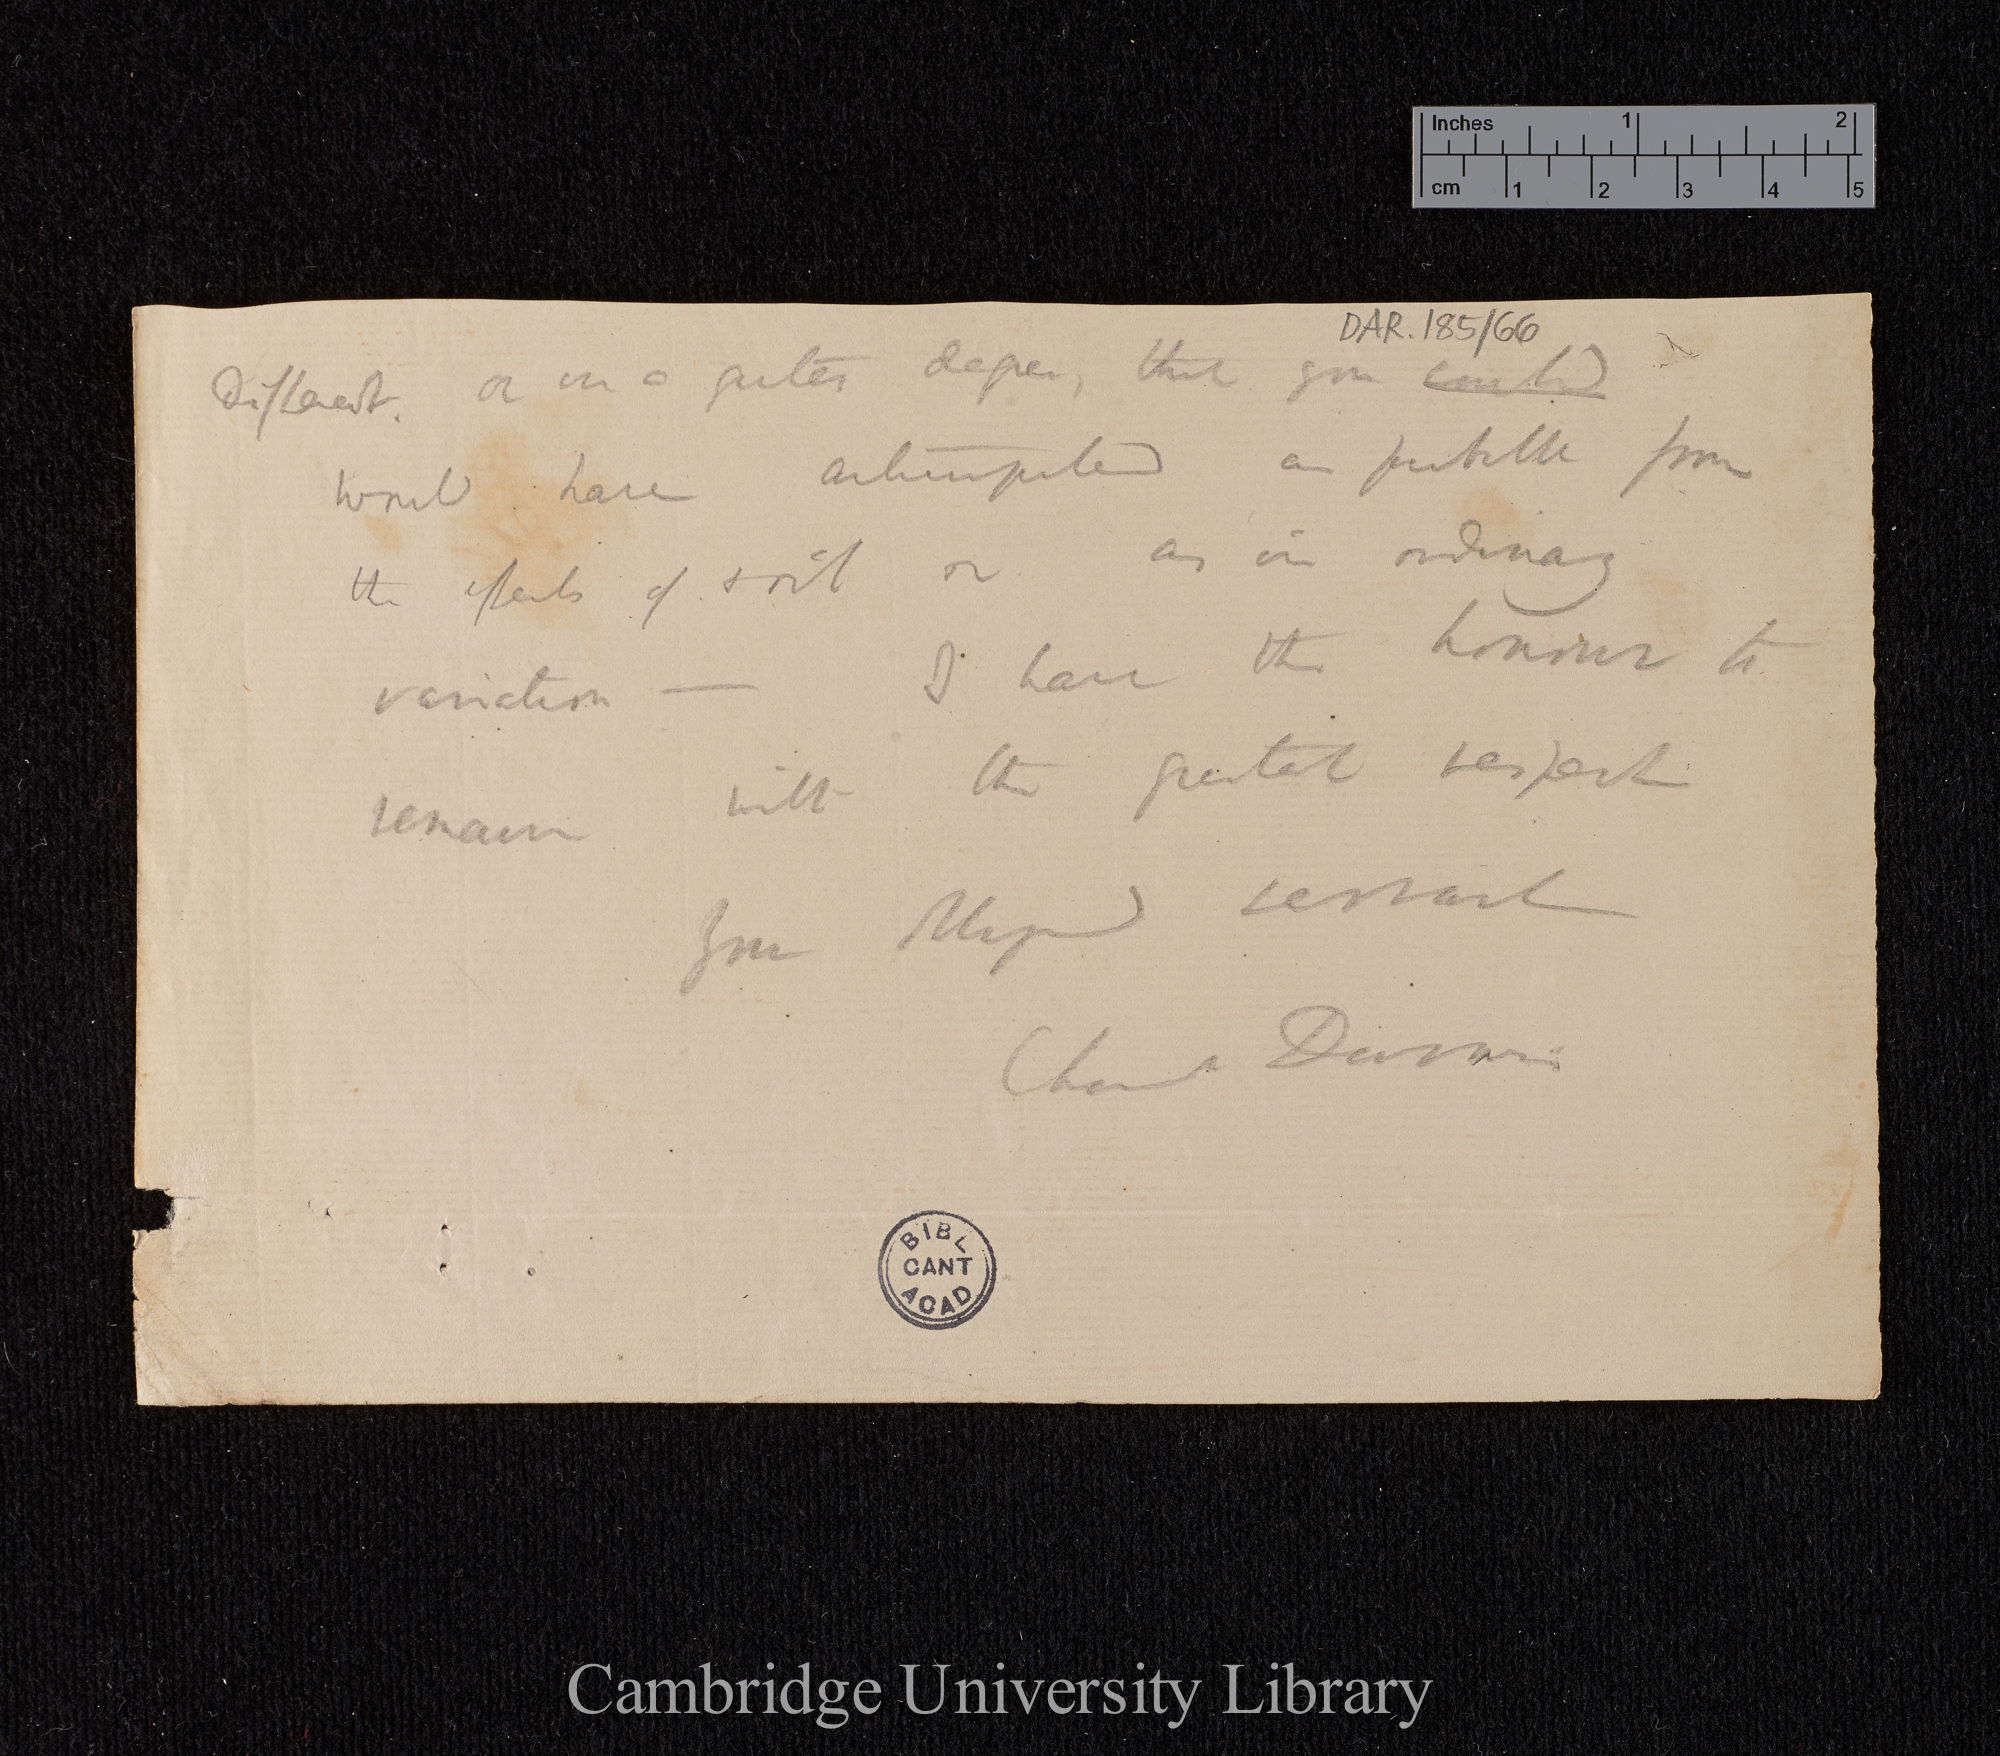 Inches 1 2
cm 1 2 3 4 5
DAR. 185/66
different. or in a greater degree, that you could
would have anticipated as probable from
the effects of soil or as in ordinary
variation — I have the honour to
remain with the greatest respect
Your obliged servant
Charles Darwin
BIBL
CANT
ACAD
Cambridge University Library